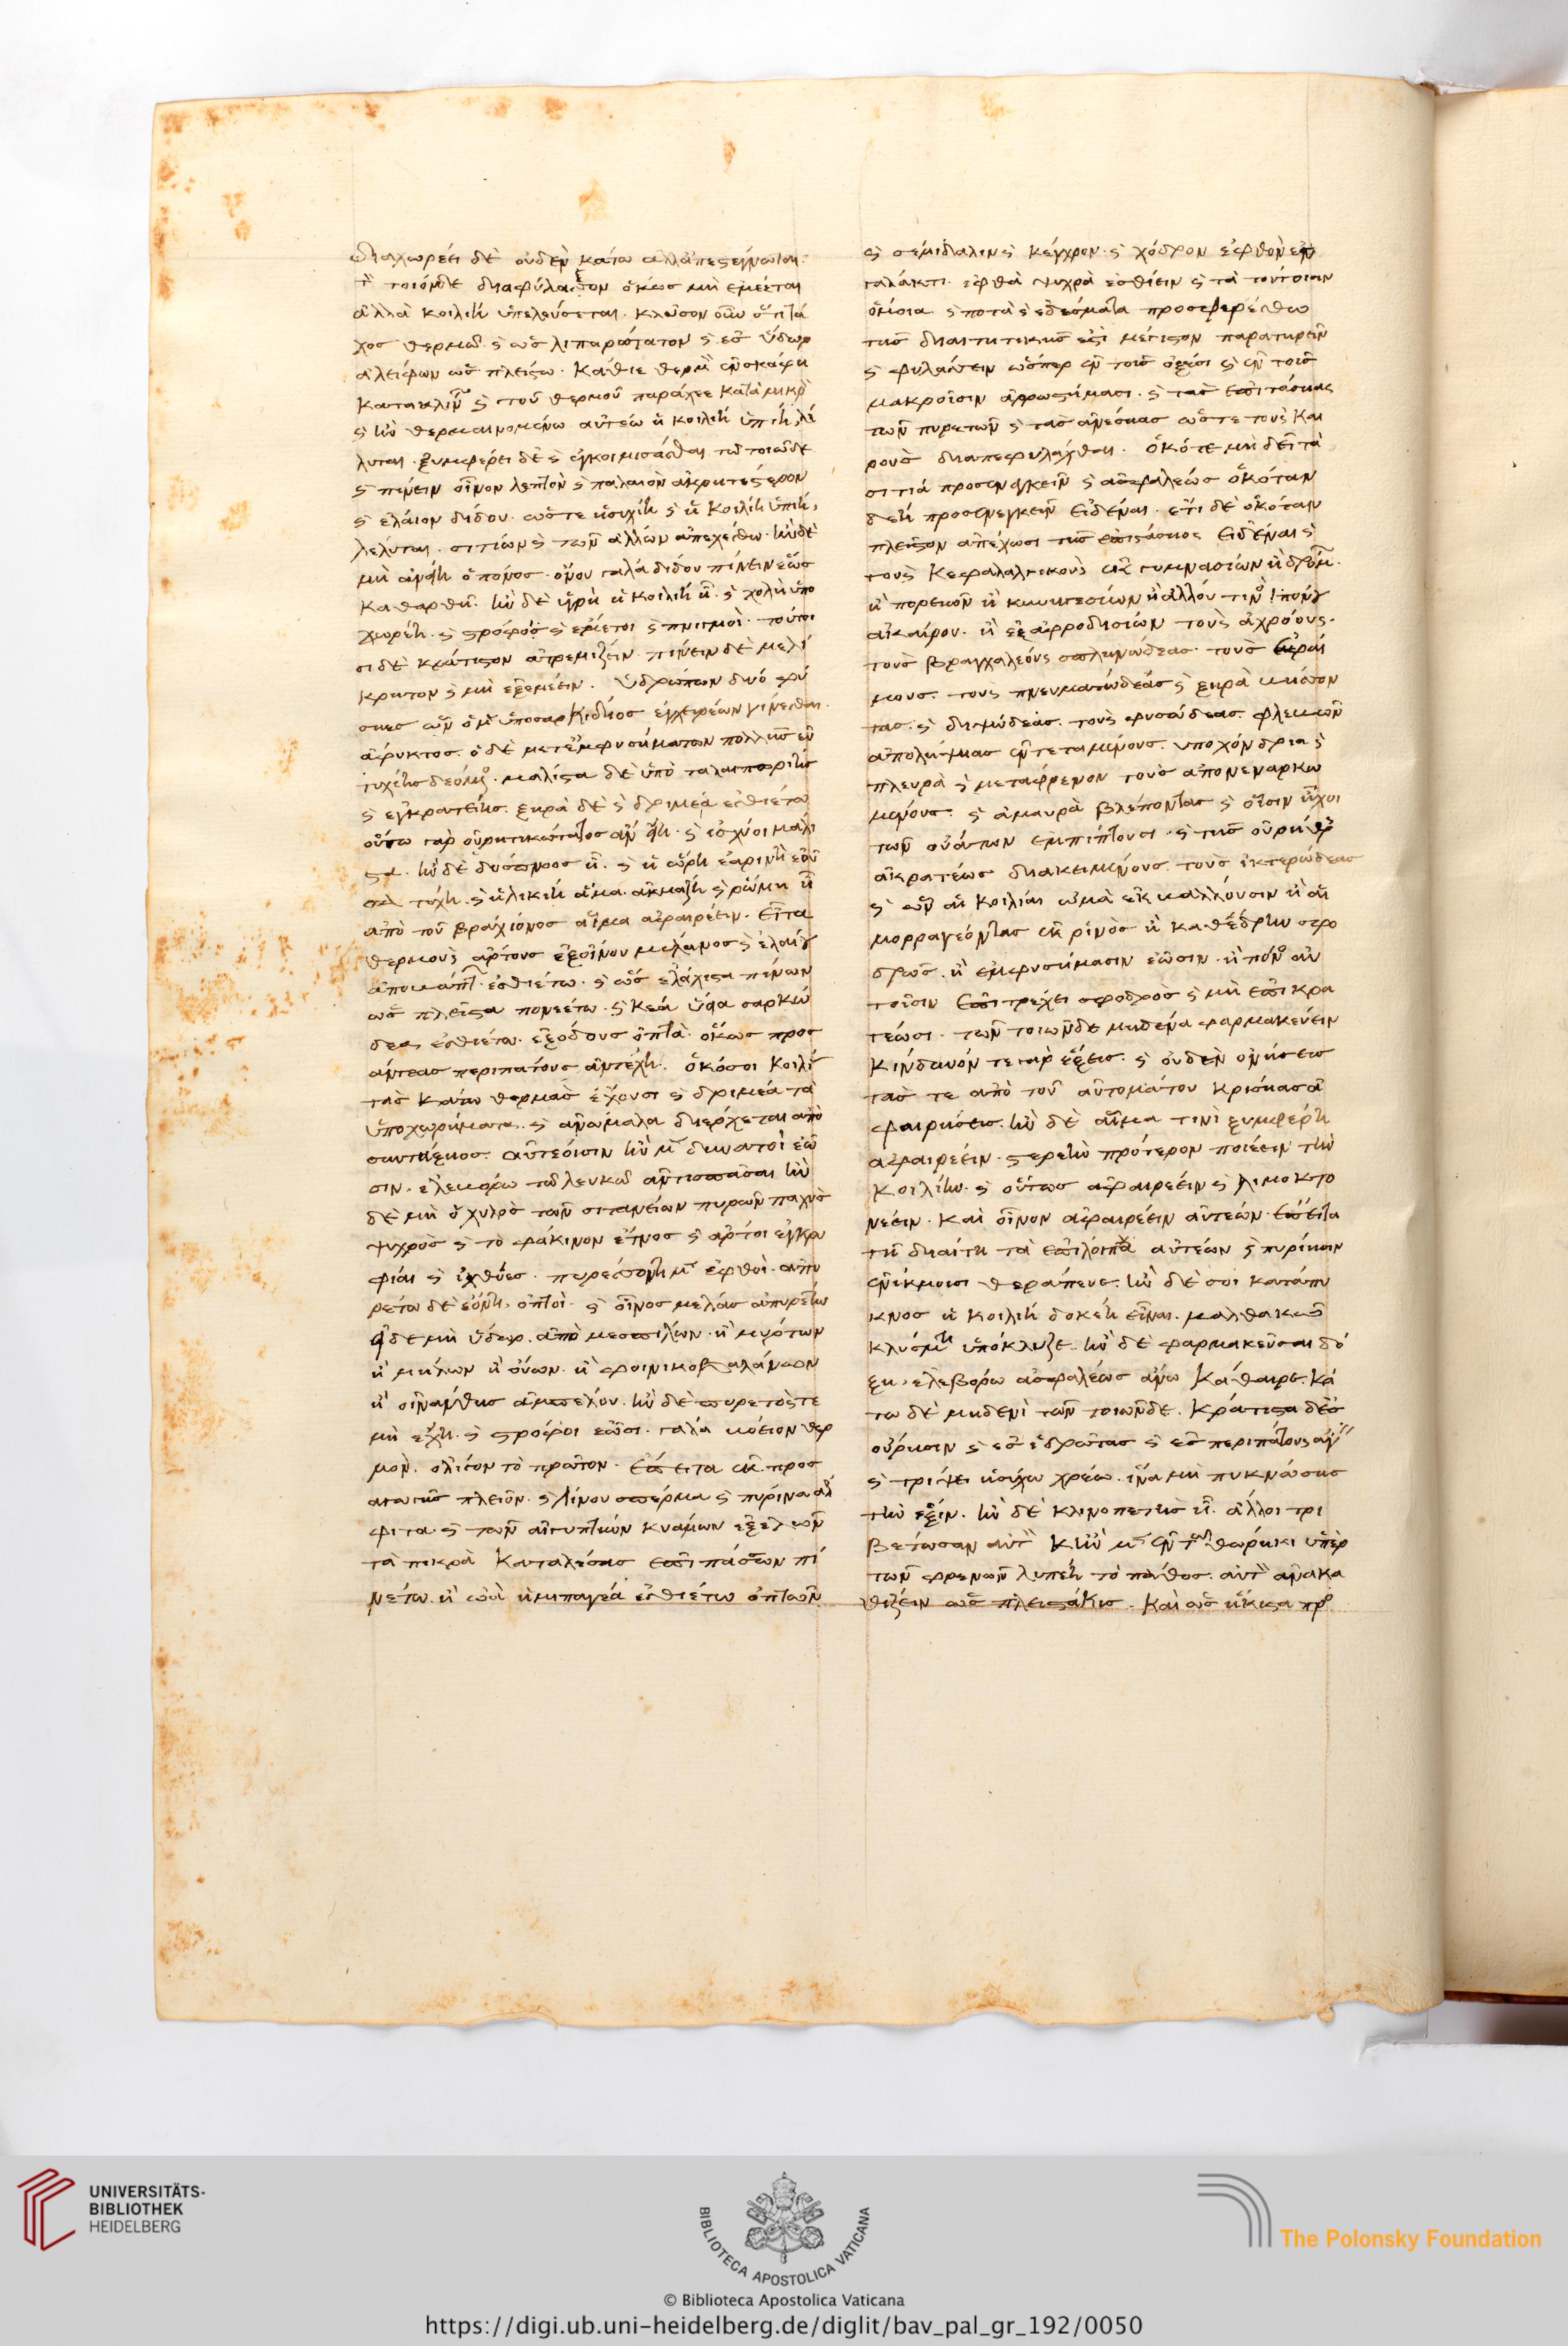 διαχωρέει δὲ οὐδὲν κάτω
τοιόνδε διαφύλασσον ὅκως μὴ ἐμέεται
ἀλλὰ κοιλίη ὑπελεύσεται. κλύσον οὖν ὅτι τά
χος θερμῶ. καὶ ὡς λιπαρώτατον καὶ ἐς ὕδωρ
ἀλείφων ὡς πλείστω. κάθιζε θερμὸν ἐν σκάφη
κατακλίνων καὶ τοῦ θερμοῦ παράχεε κατὰ μικρὸν
καὶ ἢν θερμαινομένω αὐτέω ἡ κοιλίη
λυται. ξυμφέρει δὲ καὶ ἐγκοιμίσασθαι τῶ τοιῶδε
καὶ πίνειν οἶνον λεπτὸν καὶ παλαιὸν ἀκρητέστερον
καὶ ἔλαιον δίδου. ὥστε ἡσυχίη καὶ ἡ κοιλίη ὑπη
λέλυται. σιτίων καὶ τῶν ἄλλων ἀπεχέσθω. ἢν δὲ
μὴ ἀνῆ ὁ πόνος. ὄνου γάλα δίδου πίνειν ἕως
καθαρθῆ. ἢν δὲ ὑγρὴ ἡ κοιλίη ἦ. καὶ χολὴ ὑπο
χωρέη. καὶ στρόφοι καὶ ἔμετοι καὶ πνιγμοὶ. τούτοι
σι δὲ κράτιστον ἀτρεμίζειν. πίνειν δὲ μελί
κρητον καὶ μὴ ἐξεμέειν. ὑδρώπων δύο φύ
σιες ὧν ὁ μὲν ὑποσαρκίδιος ἐγχειρέων γίνεσθαι.
ἄφυκτος. ὁ δὲ μετ' ἐμφυσημάτων πολλῆς εὐ
τυχίης δεόμενος. μάλιστα δὲ ὑπὸ ταλαιπωρίης
καὶ ἐγκρατείης. ξηρὰ δὲ καὶ δριμέα ἐσθιέτω
οὕτω γὰρ οὐρητικώτατος ἂν εἴη. καὶ ἰσχύοι μάλι
στα. ἢν δὲ δύσπνοος ἦ. καὶ ἡ ὥρη ἐαρινὴ ἐοῦ
σα τύχη. καὶ ἡλικίη ἅμα ἀκμάζη καὶ ῥώμη ἦ
ἀπὸ τοῦ βραχίονος αἷμα ἀφαιρέειν. εἶτα
θερμοὺς ἄρτους ἐξ οἴνου μέλανος καὶ ἐλαίου
ἀποβάπτων ἐσθιέτω. καὶ ὡς ἐλάχιστα πίνων
ὡς πλεῖστα πονεέτω. καὶ κρέα ὕεια σαρκώ
δεα ἐσθιέτω. ἐξ ὄξους ὀπτὰ. ὅκως πρὸς
ἄντεας περιπάτους ἀντέχη. ὁκόσοι κοιλί
ας κάτω θερμὰς ἔχουσι καὶ δριμέα τὰ
ὑποχωρήματα. καὶ ἀνώμαλα διέρχεται ἀπὸ
συντήξιος. αὐτέοισιν ἢν μὲν δυνατοὶ ἐῶ
σιν. ἐλεβόρω τῶ λευκῶ ἀντισπᾶσαι ἢν
δὲ μὴ ὁ χυλὸς τῶν σιτανίων πυρῶν παχὺς
ψυχρὸς καὶ τὸ φάκινον ἔτνος καὶ ἄρτοι ἐγκρυ
φίαι καὶ ἰχθύες. πυρέσσοντι μὲν ἑφθοὶ. ἀπυ
ρέτω δὲ ἐόντι. ὀπτοὶ. καὶ οἶνος μέλας ἀπυρέτω
εἰ δὲ μὴ ὕδωρ. ἀπὸ μεσπίλων. ἢ μύρτων
ἢ μήλων ἢ ὄων. ἢ φοινικοβαλάνων
ἢ οἰνάνθης ἀμπέλου. ἢν δὲ πυρετός τε
μὴ ἔχη. καὶ στρόφοι ἐῶσι. γάλα ὄνειον θερ
μὸν. ὀλίγον τὸ πρῶτον. ἔπειτα ἐκ προσ
αγωγῆς πλεῖον. καὶ λίνου σπέρμα καὶ πύρινα ἄλ
φιτα. καὶ τῶν αἰγυπτίων κυάμων ἐξελὼν
τὰ πικρὰ καταλέσας ἐπιπάσσων πι
νέτω. ἢ ὠὰ ἡμιπαγέα ἐσθιέτω ὀπτῶν
καὶ σεμίδαλιν καὶ κέγχρον. καὶ χόνδρον ἑφθὸν ἐν
γάλακτι. ἑφθὰ ψυχρὰ ἐσθίειν καὶ τὰ τούτοισιν
ὅμοια καὶ ποτὰ καὶ ἐδέσματα προσφερέσθω
τῆς διαιτητικῆς ἐστὶ μέγιστον παρατηρεῖν
καὶ φυλάσσειν ὥσπερ ἐν τοῖς ὀξέσι καὶ ἐν τοῖς
μακροῖσιν ἀρρωστήμασι. καὶ τὰς ἐπιτάσιας
τῶν πυρετῶν καὶ τὰς ἀνέσιας ὥστε τοὺς και
ροὺς διαπεφυλάχθαι. ὁκότε μὴ δεῖ τὰ
σιτία προσενεγκεῖν καὶ ἀσφαλέως ὁκόταν
δέη προσενεγκεῖν εἰδέναι. ἔτι δὲ ὁκόταν
πλεῖστον ἀπέχωσι τῆς ἐπιτάσιος εἰδέναι καὶ
τοὺς κεφαλαλγικοὺς ἐκ γυμνασίων ἢ δρόμων
ἢ πορειῶν ἢ κυνηγεσίων ἢ ἄλλου τινὸς πόνου
ἀκαίρου. ἢ ἐξ ἀφροδισίων τοὺς ἀχρόους.
τοὺς βραγχαλέους σπληνώδεας. τοὺς λιφαί
μους. τοὺς πνευματώδεας καὶ ξηρὰ βήσσον
τας. καὶ διψώδεας. τοὺς φυσώδεας. φλεβῶν
ἀπολήψιας ἐντεταμένους. ὑποχόνδρια καὶ
πλευρὰ καὶ μετάφρενον τοὺς ἀπονεναρκω
μένους. καὶ ἀμαυρὰ βλέποντας καὶ οἷσιν ἦχοι
τῶν οὐάτων ἐμπίπτουσι. καὶ τῆς οὐρήθρης
ἀκρατέως διακειμένους. τοὺς ἰκτερώδεας
καὶ ὧν αἱ κοιλίαι ὠμὰ ἐκβάλλουσιν ἢ αἱ
μορραγέοντας ἐκ ῥινὸς ἢ καθ' ἕδρην σφο
δρῶς. ἢ ἐμφυσήμασιν ἐῶσιν. ἢ πόνος ἂν
τοῖσιν ἐπιτρέχει σφοδρὸς καὶ μὴ ἐπικρα
τέωσι. τῶν τοιῶνδε μηδένα φαρμακεύειν
κίνδυνόν τε γὰρ ἕξεις. καὶ οὐδὲν ὀνήσεις
τάς τε ἀπὸ τοῦ αὐτομάτου κρίσιας ἀ
φαιρήσεις. ἢν δὲ αἷμα τινὶ ξυμφέρη
ἀφαιρέειν. στερεὴν πρότερον ποιέειν τὴν
κοιλίην. καὶ οὕτως ἀφαιρέειν καὶ λιμοκτο
νέειν. καὶ οἶνον ἀφαιρέειν αὐτέων. ἔπειτα
τῆ διαίτη τὰ ἐπίλοιπα αὐτέων καὶ πυρίησιν
ἐνίκμοισι θεράπευε. ἢν δέ σοι κατάπυ
κνος ἡ κοιλίη δοκέη εἶναι. μαλθακῶ
κλύσματι ὑπόκλυζε. ἢν δὲ φαρμακεῦσαι δό
ξη. ἐλεβόρω ἀσφαλέως ἄνω κάθαιρε. κά
τω δὲ μηδενὶ τῶν τοιῶνδε. κράτιστα δὲ ἐς
οὔρησιν καὶ ἐς ἱδρῶτας καὶ ἐς περιπάτους ἄγειν
καὶ τρίψει ἡσύχω χρέω. ἵνα μὴ πυκνώσης
τὴν ἕξιν. ἢν δὲ κλινοπετὴς ἦ. ἄλλοι τρι
βέτωσαν αὐτὸν κἢν μὲν ἐν τῶ θώρηκι ὑπὲρ
τῶν φρενῶν λυπέη τὸ πάθος. αὐτὸν ἀνακα
θίζειν ὡς πλειστάκις. καὶ ὡς ἥκιστα προς
UNIVERSITÄTS-
BIBLIOTHEK
HEIDELBERG
BIBLIOTECA APOSTOLICA VATICANA
The Polonsky Foundation
© Biblioteca Apostolica Vaticana
https://digi.ub.uni-heidelberg.de/diglit/bav_pal_gr_192/0050